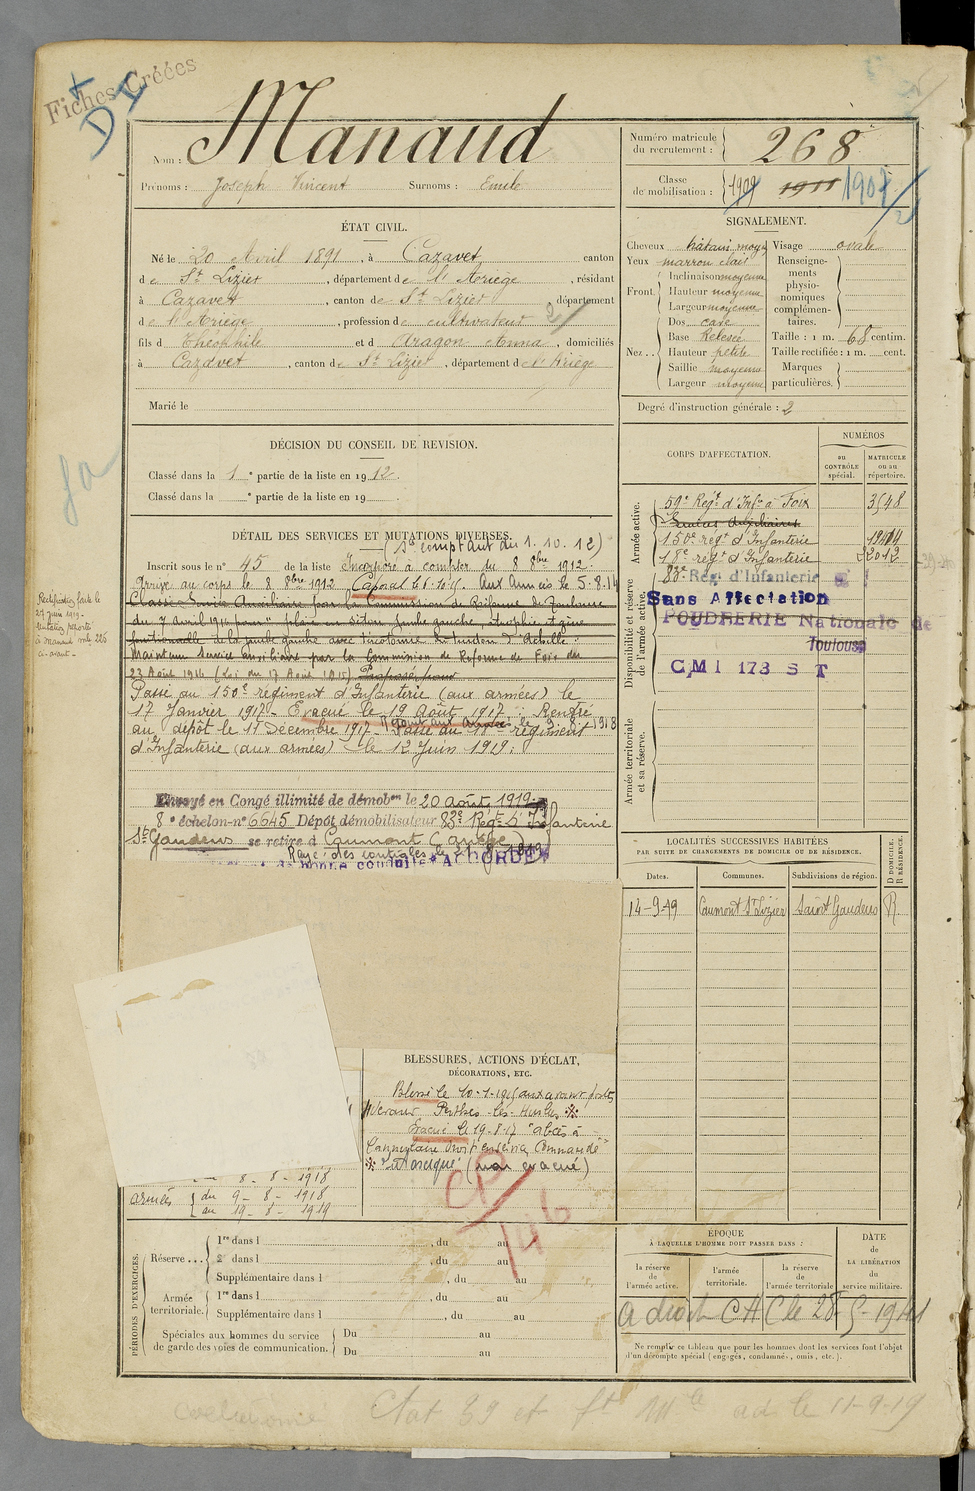 Fiches Créées
DI
Nom : Manaud
Numéro matricule du recrutement : 268
Prénoms : Joseph Vincent Surnoms : Emile
Classe de mobilisation : 1909 1911 1907
ÉTAT CIVIL.
Né le 20 Avril 1891, à Cazavet canton
de St Lizier, département de l'Ariège, résidant
à Cazavet, canton de St Lizier, département
de l'Ariège, profession de cultivateur
fils de Théophile et d Aragon Anna, domiciliés
à Cazavet, canton de St Lizier, département de l'Ariège
Marié le
SIGNALEMENT.
Cheveux châtain moyen Visage ovale
Yeux marron clair
Front. Inclinaison moyenne
Hauteur moyenne
Largeur moyenne
Nez.. Dos cave
Base Relevée
Hauteur petite
Saillie moyenne
Largeur moyenne
Renseignements physionomiques complémentaires.
Taille : 1 m. 68 centim.
Taille rectifiée : 1 m. cent.
Marques particulières.
Degré d'instruction générale : 2
DÉCISION DU CONSEIL DE RÉVISION.
Classé dans la 1e partie de la liste en 1912.
Classé dans la e partie de la liste en 19
DÉTAIL DES SERVICES ET MUTATIONS DIVERSES.
(Sce comptant du 1.10.12)
Inscrit sous le n° 45 de la liste Incorporé à compter du 8 8bre 1912.
Arrivé au corps le 8 8bre 1912 Caporal le 6.10.15. Aux Armées le 5-8-14
Classé Service Auxiliaire par la Commission de Réforme de Toulouse
du 7 Avril 1916 pour plaie en séton jambe gauche, atrophie et gène
fonctionnelle de la jambe gauche avec ténotomie du tendon d'Achille.
Maintenu Service auxiliaire par la Commission de Réforme de Foix du
23 Août 1916 (Loi du 17 Août 1915)
Passé au 150e régiment d'Infanterie (aux armées) le
17 Janvier 1917 - Evacué le 19 Août 1917 : Rentré
au dépôt le 11 Décembre 1917 - Reparti aux armées le 9.8.1918
Passé au 18e régiment
d'Infanterie (aux armées) le 12 Juin 1919.
Envoyé en Congé illimité de démobon le 20 août 1919
8e échelon n° 6645 Dépôt démobilisateur 83e Regt d'Infanterie
St Gaudens se retire à Caumont (Ariège)
Rayé des contrôles le 21.8.1919
de bonne conduite ACCORDÉ
Rectification faite le
27 juin 1919 -
mutation portée
à Manaud mle 226
ci-avant -
CORPS D'AFFECTATION.
NUMÉROS
au CONTRÔLE spécial.
MATRICULE ou au répertoire.
Armée active.
59e Régt d'Infie à Foix 3548
Services Auxiliaires
150e régt d'Infanterie 19414
18e régt d'Infanterie 22012
Disponibilité et réserve de l'armée active.
83e Régt d'Infanterie
Sans Affectation
POUDRERIE Nationale de
Toulouse
CMI 173 S T
Armée territoriale et sa réserve.
LOCALITÉS SUCCESSIVES HABITÉES
PAR SUITE DE CHANGEMENTS DE DOMICILE OU DE RÉSIDENCE.
D DOMICILE. R RÉSIDENCE.
Dates. Communes. Subdivisions de région.
14-9-19 Caumont St Lizier Saint Gaudens R
BLESSURES, ACTIONS D'ÉCLAT,
DÉCORATIONS, ETC.
Blessé le 10-1-1915 aux avant postes
devant Perthes-les-Hurlus
Evacué le 19-8-17 "abcès à
(non evacué)
CP/146
8 - 8 - 1918
armées du 9 - 8 - 1918
au 19 - 8 - 1919
PÉRIODES D'EXERCICES.
Réserve... 1re dans l , du au
2e dans l , du au
Supplémentaire dans l , du au
Armée territoriale. 1re dans l , du au
Supplémentaire dans l , du au
Spéciales aux hommes du service
de garde des voies de communication. Du au
Du au
ÉPOQUE
À LAQUELLE L'HOMME DOIT PASSER DANS :
la réserve de l'armée active.
l'armée territoriale.
la réserve de l'armée territoriale
DATE de LA LIBÉRATION du service militaire.
a droit CAC le 28-5-1941
Ne remplir ce tableau que pour les hommes dont les services font l'objet
d'un décompte spécial (engagés, condamnés, omis, etc.).
Etat 39 et ad le 11-9-19